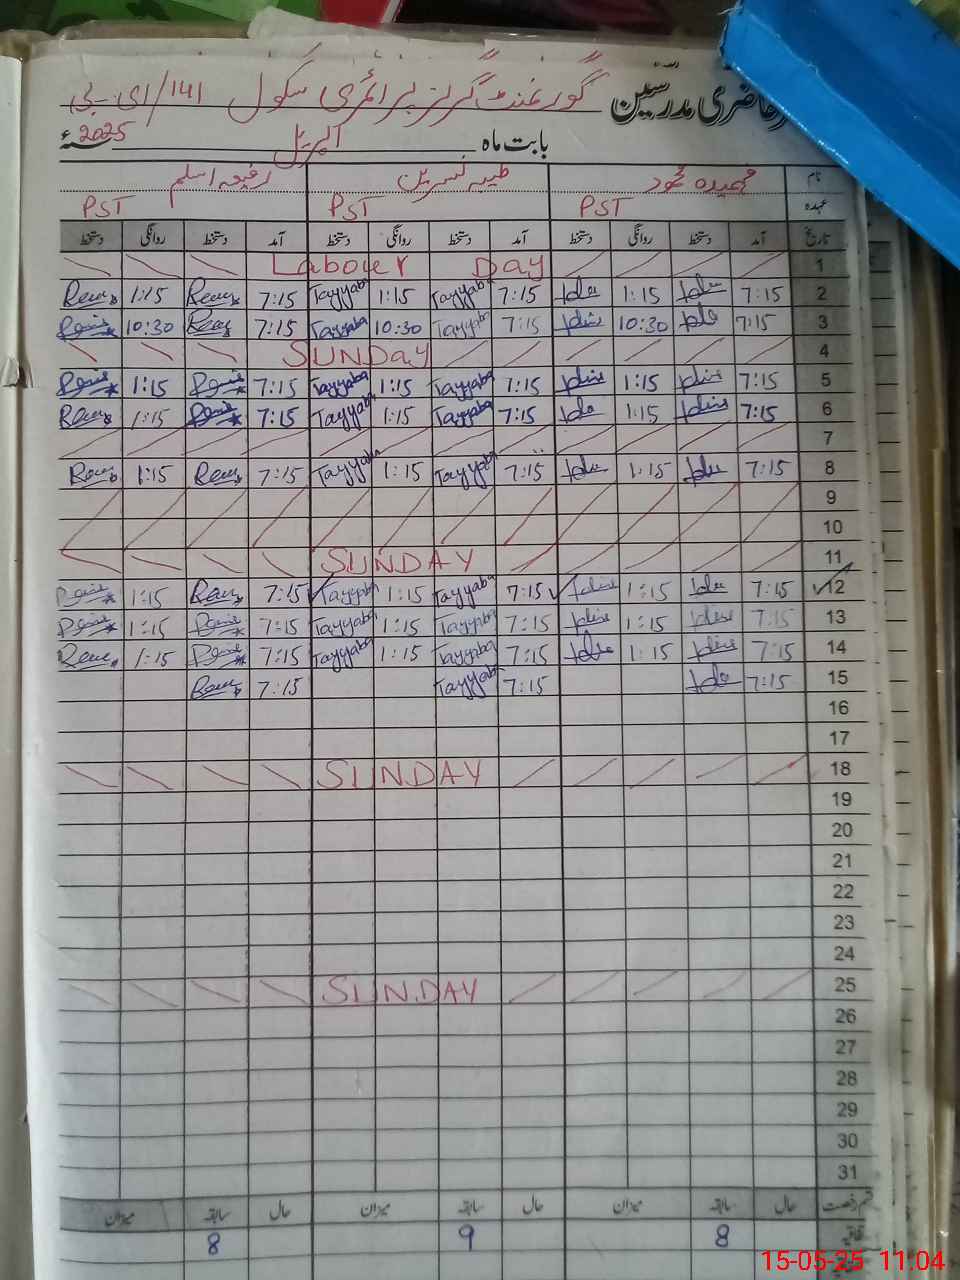 حاضری مدرسین گورنمنٹ گرلز پرائمری سکول 141/ای۔بی
بابت ماہ اپریل 2025ء
نام فہمیدہ محمود طیبہ نسرین رفیعہ اسلم
عہدہ PST PST PST
تاریخ آمد دستخط روانگی دستخط آمد دستخط روانگی دستخط آمد دستخط روانگی دستخط
1 Labour Day
2 7:15 1:15 7:15 Tayyaba 1:15 Tayyaba 7:15 1:15
3 7:15 10:30 7:15 Tayyaba 10:30 Tayyaba 7:15 10:30
4 SUNDay
5 7:15 1:15 7:15 Tayyaba 1:15 Tayyaba 7:15 1:15
6 7:15 1:15 7:15 Tayyaba 1:15 Tayyaba 7:15 1:15
7
8 7:15 1:15 7:15 Tayyaba 1:15 Tayyaba 7:15 1:15
9
10
11 SUNDAY
12 7:15 1:15 7:15 Tayyaba 1:15 Tayyaba 7:15 1:15
13 7:15 1:15 7:15 Tayyaba 1:15 Tayyaba 7:15 1:15
14 7:15 1:15 7:15 Tayyaba 1:15 Tayyaba 7:15 1:15
15 7:15 7:15 Tayyaba 7:15
16
17
18 SUNDAY
19
20
21
22
23
24
25 SUNDAY
26
27
28
29
30
31
قسم رخصت حال سابقہ میزان حال سابقہ میزان حال سابقہ میزان
8 9 8
15-05-25 11:04